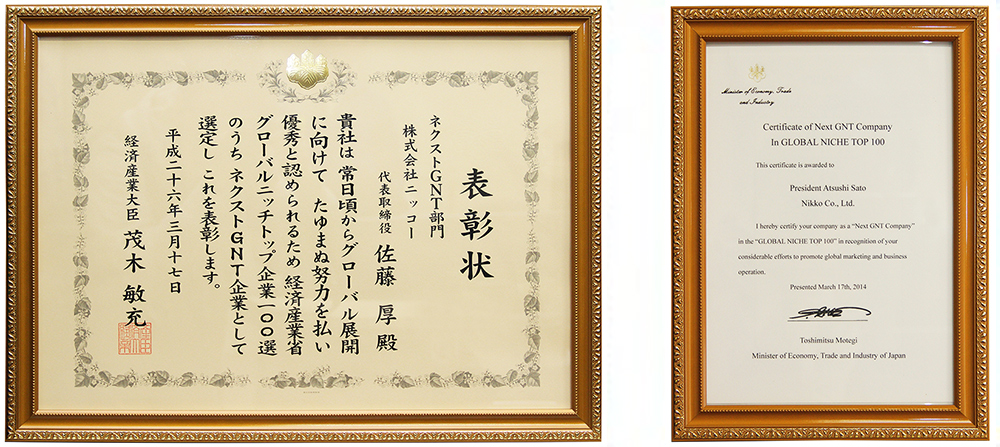 表彰状
ネクストGNT部門
株式会社ニッコー
代表取締役 佐藤 厚 殿
貴社は 常日頃からグローバル展開
に向けて たゆまぬ努力を払い
優秀と認められるため 経済産業省
グローバルニッチトップ企業一〇〇選
のうち ネクストGNT企業として
選定し これを表彰します。
平成二十六年三月十七日
経済産業大臣 茂木 敏充
Minister of Economy, Trade
and Industry
Certificate of Next GNT Company
In GLOBAL NICHE TOP 100
This certificate is awarded to
President Atsushi Sato
Nikko Co., Ltd.
I hereby certify your company as a “Next GNT Company”
in the “GLOBAL NICHE TOP 100” in recognition of your
considerable efforts to promote global marketing and business
operation.
Presented March 17th, 2014
Toshimitsu Motegi
Minister of Economy, Trade and Industry of Japan